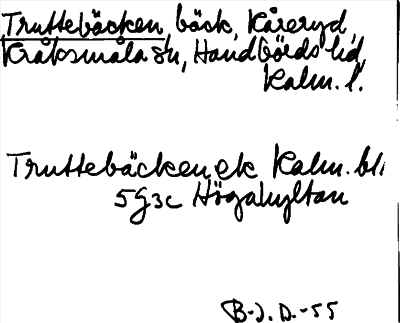 Truttebäcken, bäck, Kåreryd,
Kråksmåla sn, Handbörds hd,
Kalm. l.
Truttebäcken, ek Kalm. bl.
5G3c Högahyltan
B-J. D. -55